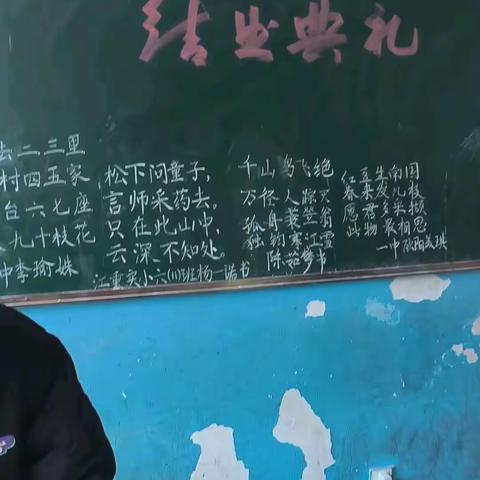 结业典礼
去二三里
村四五家
台六七座
九十枝花
中李瑜姝
松下问童子,
言师采药去。
只在此山中,
云深不知处。
江重实小六(1)班杨一诺书
千山鸟飞绝
万径人踪灭
孤舟蓑笠翁
独钓寒江雪
陈梦书
红豆生南国
春来发几枝
愿君多采撷
此物最相思
一中